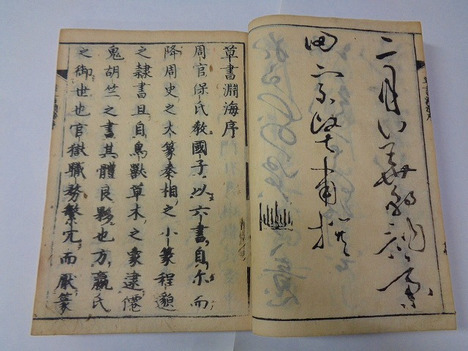 三月
甫撰
草書淵海序
周官保氏教國子以六書自尓而
降周史之大篆秦相之小篆程邈
之隷書且自鳥獸草木之象逮僊
鬼胡竺之書其體良夥也方嬴氏
之御世也官獄職務繁冗而厭篆